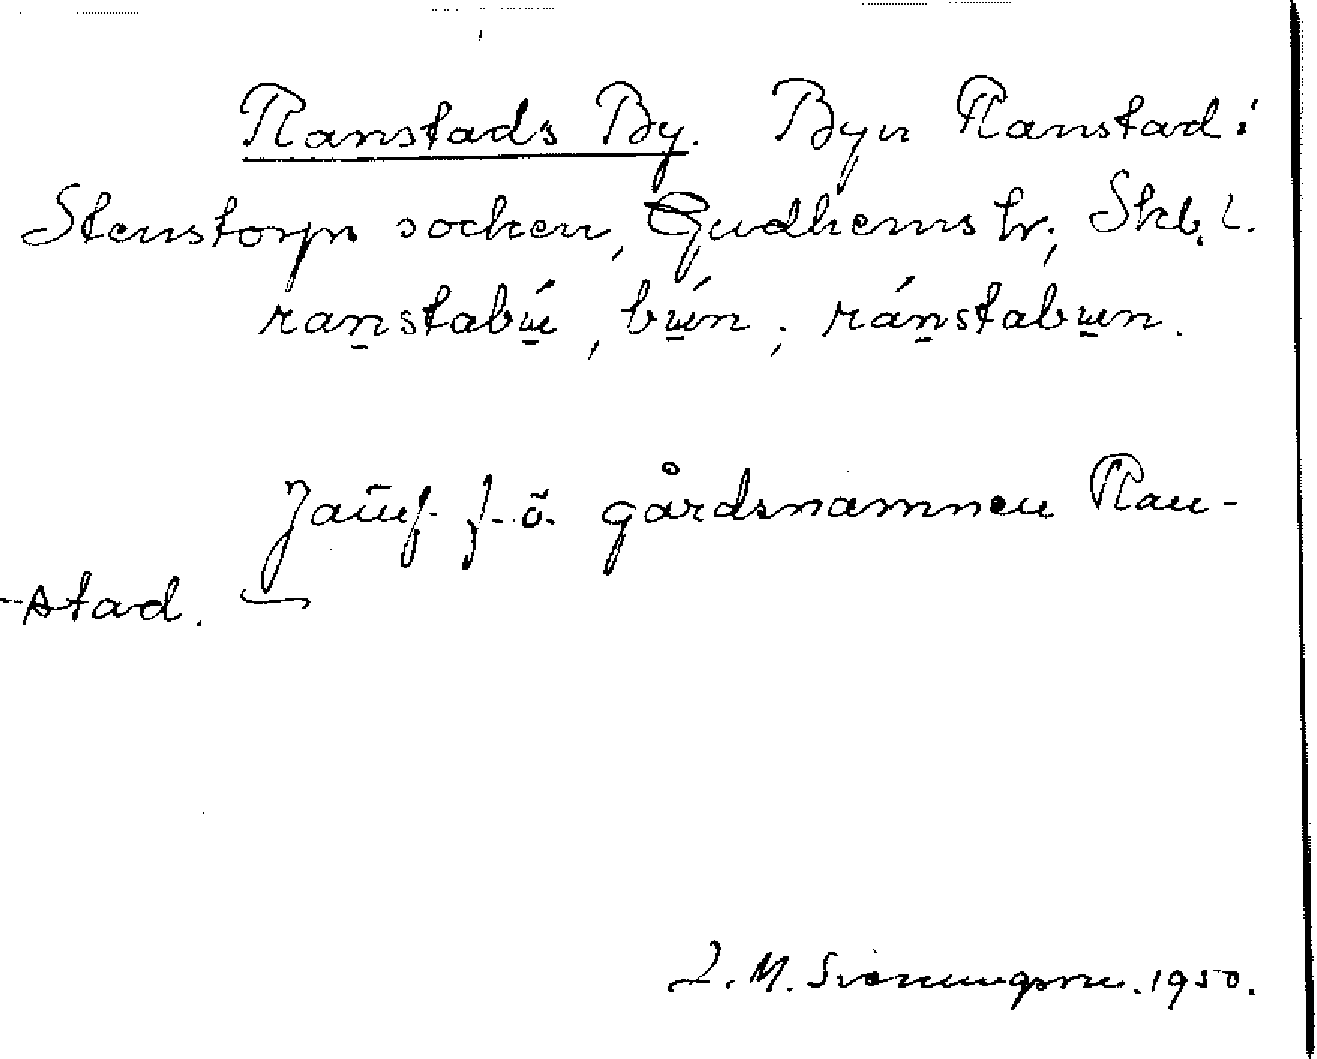 Ranstads By. Byn Ranstad i
Stenstorps socken, Gudhems hr., Skb. l.
ranstabú, bún; ránstabun.
Jämf. f. ö. gårdsnamnen Ran-
-stad.
M. Svenungsson. 1950.